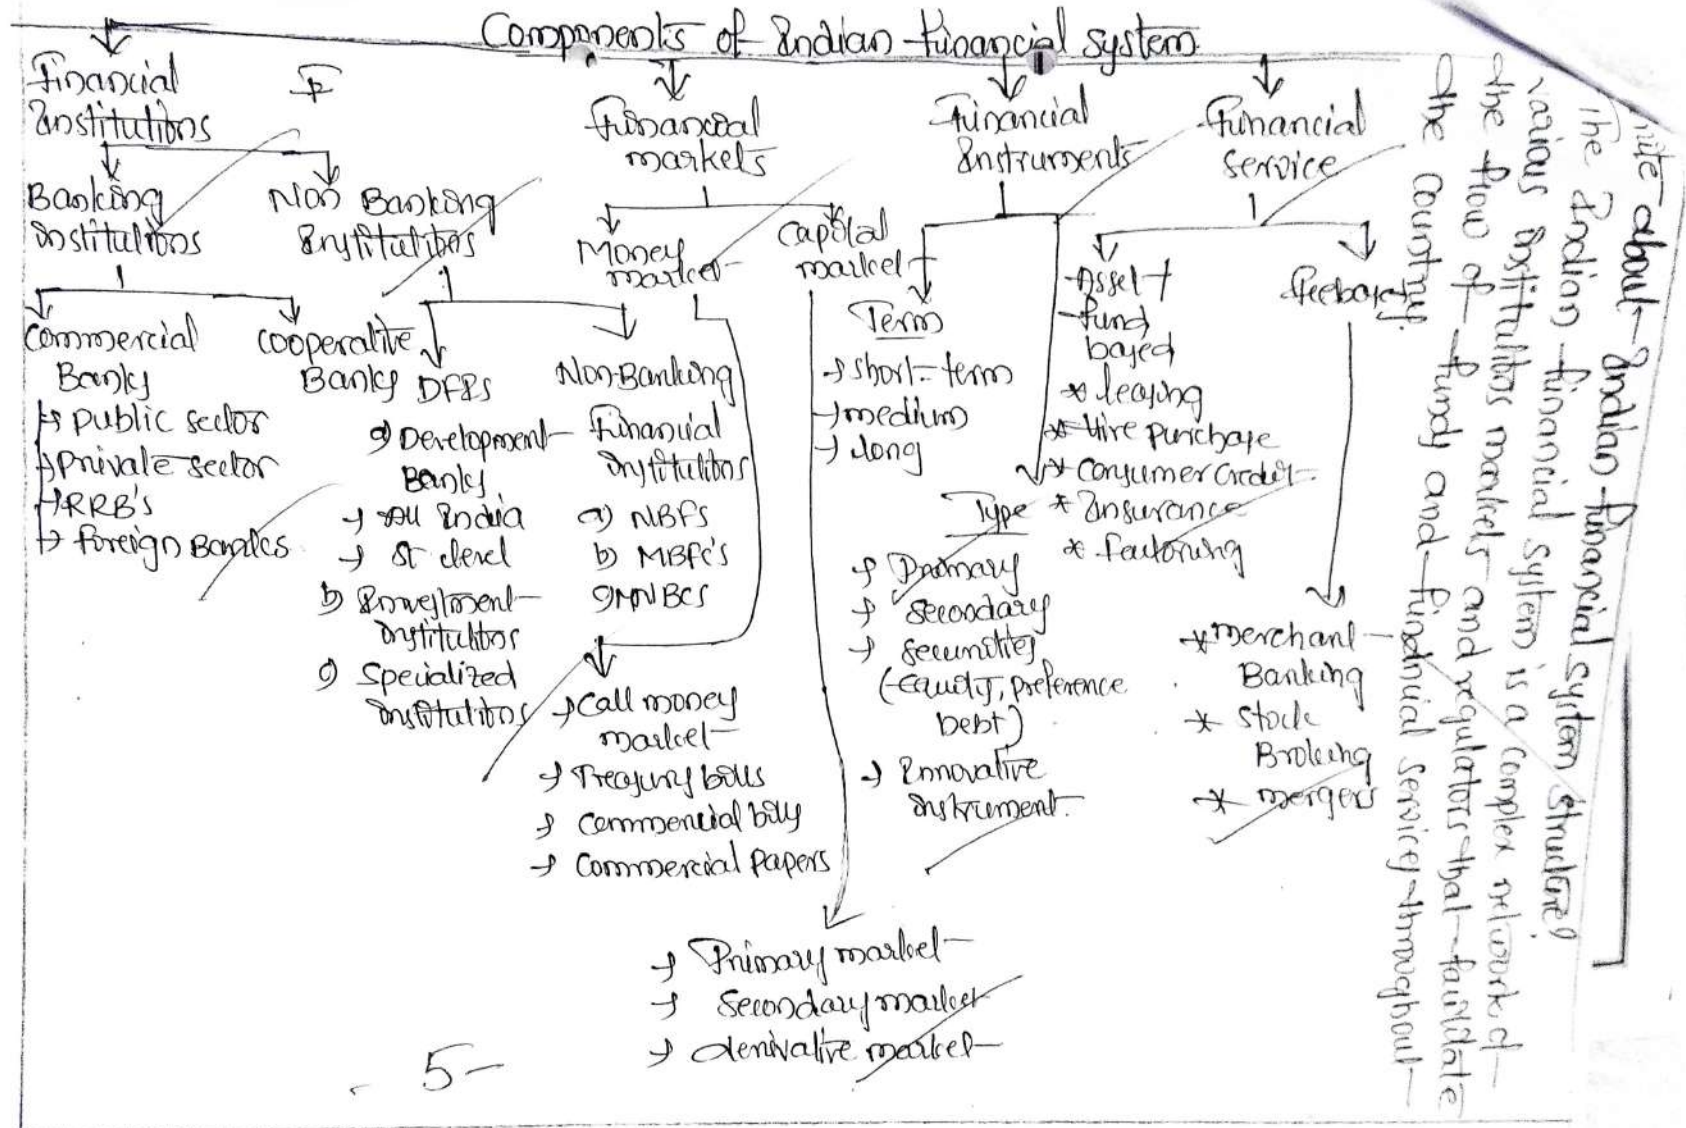 Components of Indian financial system
Financial
Institutions
F
Banking
Institutions
Non Banking
Institutions
Commercial
Banks
→ public sector
→ private sector
→ RRB's
→ foreign Banks
cooperative
Banks
DFIs
a) Development
Banks
→ All India
→ St level
b) Investment
Institutions
c) Specialized
Institutions
Non-Banking
Financial
Institutions
a) NBFS
b) MBFC's
c) MNBCS
Financial
markets
Money
market
→ Call money
market
→ Treasury bills
→ Commercial bills
→ Commercial Papers
Capital
market
→ Primary market
→ Secondary market
→ derivative market
Financial
Instruments
Term
→ short-term
→ medium
→ long
Type
→ Primary
→ Secondary
→ Securities
(Equity, preference
Debt)
→ Innovative
instrument.
Financial
service
Asset /
fund
based
* leasing
* Hire purchase
* Consumer Credit
* Insurance
* factoring
feebased
* merchant
Banking
* Stock
Broking
* mergers
about Indian financial system structure
The Indian financial system is a complex network of
various institutions markets and regulators that facilitate
the flow of funds and financial services throughout
the country.
5